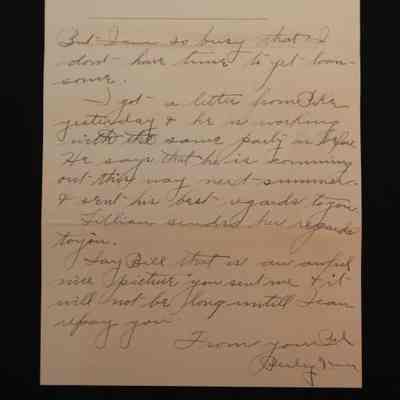 But I am so busy that I
dont have time to get lon-
some.
I got a letter from
yesterday & he is working
with the same party as before
He says that he is comming
out this way next summer.
& sent his best regards to you
Lillian sends her regards
to you.
Say Bill that is an awful
nice picture you sent me & it
will not be long untill I can
repay you
From your Pal